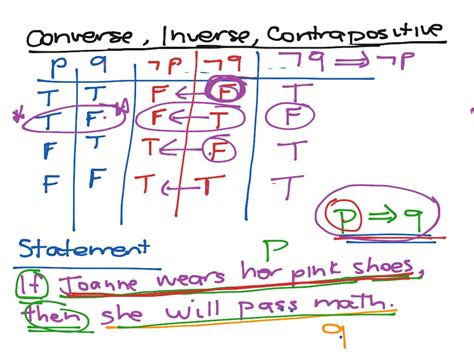 Converse, Inverse, Contrapositive
p q ¬p ¬q ¬q ⟹ ¬p
T T F ← F T
T F F ← T F
F T T ← F T
F F T ← T T
p ⟹ q
Statement p
If Joanne wears her pink shoes,
then she will pass math.
q